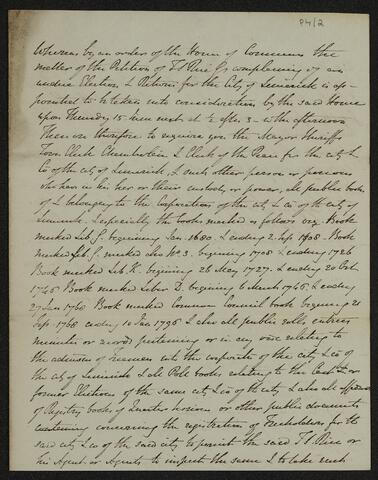 P4/2
Whereas by an order of the House of Commons the
matter of the Petition of T S Rice Esq complaining of an
undue Election & Return for the City of Limerick is ap-
pointed to be taken into consideration by the said House
upon Thursday 15 June next at ½ after 3 in the afternoon
These are therefore to require you the Mayor Sheriffs
Town Clerk Chamberlain & Clerk of the Peace for the city &
Co of the city of Limerick, & such other person or persons
who have in his her or their custody or power, all public books
of & belonging to the Corporation of the city & co of the city of
Limerick & especially the books marked as follows viz. Book
marked Lib. G. beginning Jan 1680 & ending 2 Sep 1708. Book
marked Lib. G. marked also No 3. beginning 1708 & ending 1726
Book marked Lib. K. beginning 26 May 1727. & ending 20 Oct.
1745 Book marked Liber D. beginning 6 March 1746 & ending
27 Jan 1768 Book marked Common Council book beginning 21
Sep. 1768 ending 10 Jan 1796 & also all public rolls, entries
minutes or records pertaining or in any wise relating to
the admission of Freemen into the corporation of the city & co of
the city of Limerick & all Poll books relating to the last or
former Elections of the same city & co of the city & also all affidavits
of Registry books of Quarter Sessions or other public documents
containing concerning the registration of Freeholders for the
said city & co of the said city to permit the said T S Rice or
his Agent or Agents to inspect the same & to take such